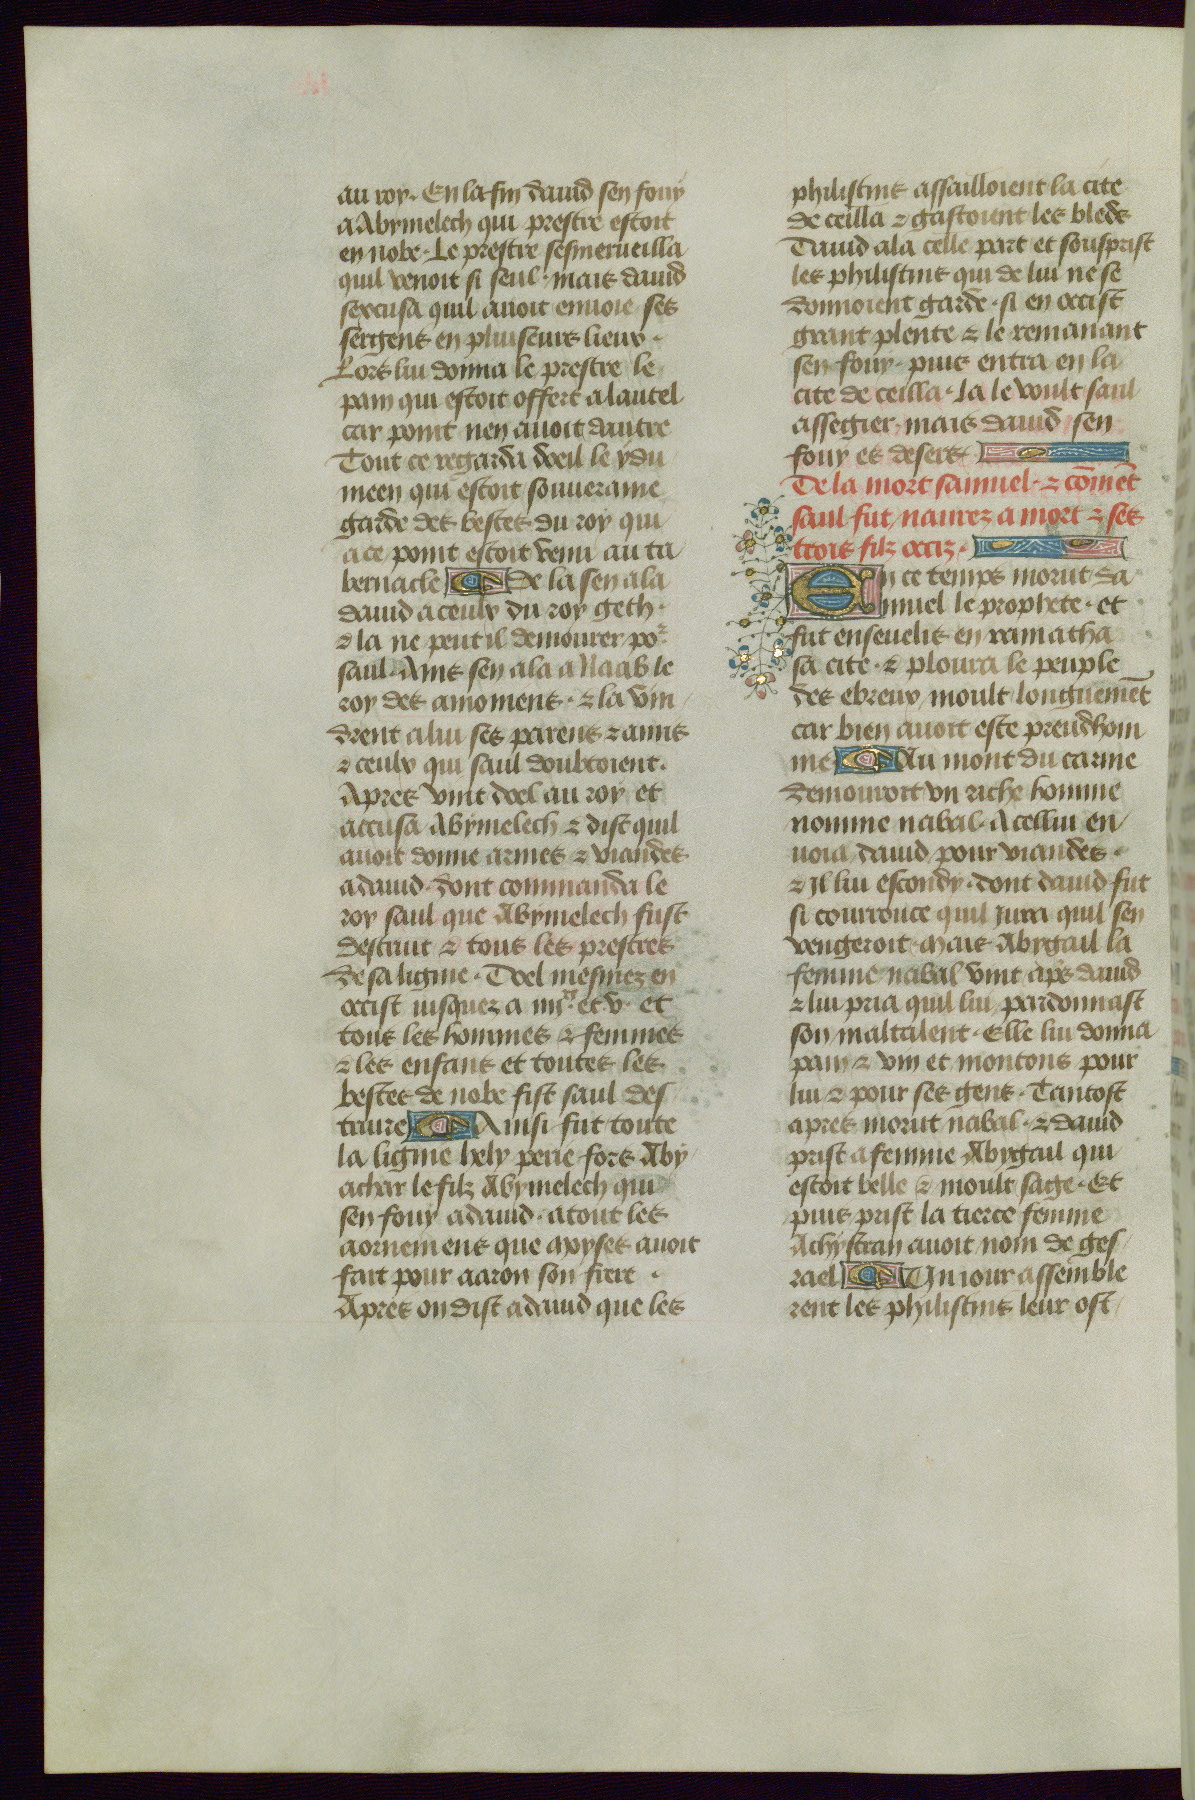 au roy. En la fin dauid sen fouy
a Abymelech qui prestre estoit
en nobe. Le prestre sesmerueilla
quil venoit si seul. mais dauid
sexcusa quil auoit enuoie ses
sergens en pluiseurs lieux.
Lors lui donna le prestre le
pain qui estoit offert a lautel
car point nen auoit dautre
Tout ce regarda doeil le ydu
meen qui estoit souueraine
garde des bestes du roy qui
a ce point estoit venu au ta
bernacle De la sen ala
dauid a ceulx du roy geth.
⁊ la ne peut il demourer po᷑
saul. Ains sen ala a Naab le
roy des amoniens. ⁊ la vin
drent a lui ses parens ⁊ amis
⁊ ceulx qui saul doubtoient.
Apres vint doel au roy et
accusa Abymelech ⁊ dist quil
auoit donne armes ⁊ viandes
a dauid. dont commanda le
roy saul que Abymelech fust
destruit ⁊ tous les prestres
de sa ligne. Doel mesmez en
occist iusquez a iiii.xx et v. et
tous les hommes ⁊ femmes
⁊ les enfans et toutes les
bestes de nobe fist saul des
truire Ainsi fut toute
la ligne hely perie fors Aby
achar le filz Abymelech qui
sen fouy a dauid. a tout les
aornemens que moyses auoit
fait pour aaron son frere.
Apres on dist a dauid que les
philistins assailloient la cite
de ceilla ⁊ gastoient les bleds
Dauid ala celle part et sousprist
les philistins qui de lui ne se
donnoient garde. si en occist
grant plente ⁊ le remanant
sen fouy. puis entra en la
cite de ceilla. La le voult saul
assegier. mais dauid sen
fouy es desers.
De la mort samuel. ⁊ cōmēt
saul fut naurez a mort ⁊ ses
trois filz occiz.
En ce temps morut sa
muel le prophete. et
fut enseuelis en ramatha
sa cite. ⁊ ploura le peuple
des ebreux moult longuemēt
car bien auoit este preudhom
me Au mont du carme
demouroit vn riche homme
nomme nabal. A cellui en
uoia dauid pour viandes.
⁊ Il lui escondy. dont dauid fut
si courrouce quil iura quil sen
vengeroit. Mais Abygail la
femme nabal vint aps dauid
⁊ lui pria quil lui pardonnast
son maltalent. Elle lui donna
pain ⁊ vin et montons pour
lui ⁊ pour ses gens. Tantost
apres morut nabal. ⁊ dauid
prist a femme Abygail qui
estoit belle ⁊ moult sage. Et
puis prist la tierce femme
Achystran auoit nom de ges
rael Un iour assemble
rent les philistins leur ost